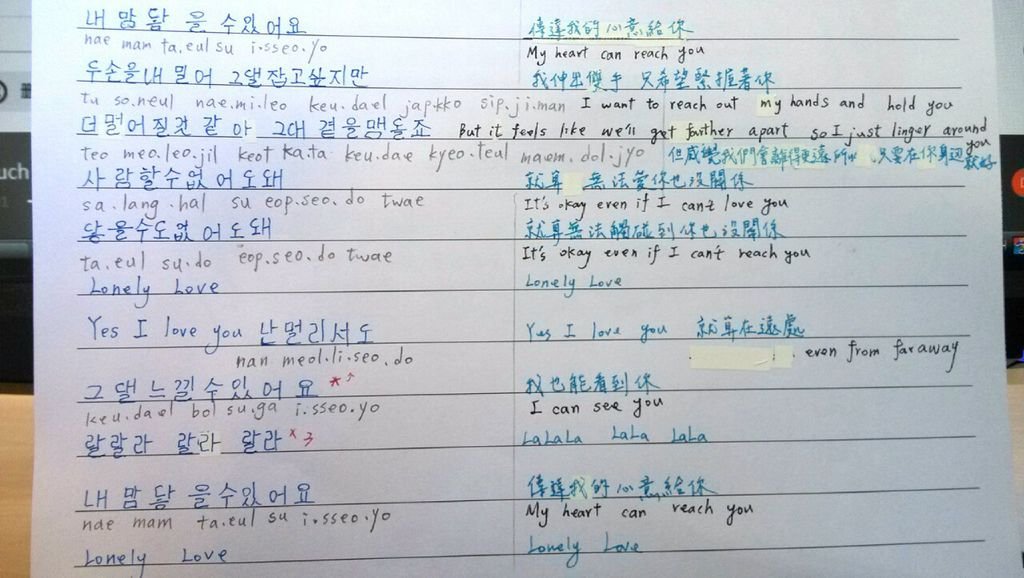 내 맘 닿 을 수 있 어 요 傳達我的心意給你
nae mam ta.eul su i.sseo.yo My heart can reach you
두손을 내 밀 어 그댈 잡고 싶지만 我伸出雙手 只希望緊握著你
tu so.neul nae.mi.leo keu.dael jap.kko sip.ji.man I want to reach out my hands and hold you
더 멀어 질것 같 아 그대 곁을맴돌죠 But it feels like we'll get farther apart so I just linger around you
teo meo.leo.jil keot ka.ta keu.dae kyeo.teul maem.dol.jyo 但感覺我們會離得更遠 所以 只要在你身邊就好
사 람 할 수 없 어 도 돼 就算 無法愛你也沒關係
sa.lang.hal su eop.seo.do twae It's okay even if I can't love you
닿 을 수도 없 어 도 돼 就算無法觸碰到你也沒關係
ta.eul su.do eop.seo.do twae It's okay even if I can't reach you
Lonely Love Lonely Love
Yes I love you 난 멀 리 서 도 Yes I love you 就算在遠處
nan meol.li.seo.do even from far away
그 댈 느 낄 수 있 어 요 *^ 我也能看到你
keu.dael bol su.ga i.sseo.yo I can see you
랄랄라 랄라 랄라 x 3 LaLaLa LaLa LaLa
내 맘 닿 을 수 있 어 요 傳達我的心意給你
nae mam ta.eul su i.sseo.yo My heart can reach you
Lonely Love Lonely Love